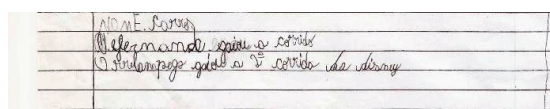 NOME: Carros
O fernand gaiou a corrida
O rrelampego gaiou a 2ª corrida da disney